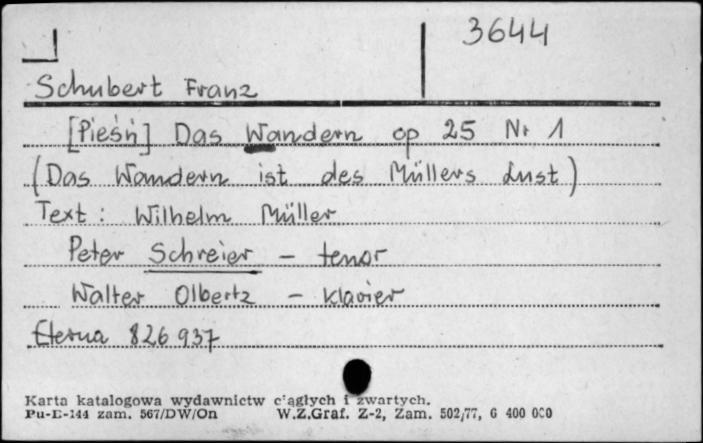 3644
Schubert Franz
[Pieśń] Das Wandern op 25 Nr 1
(Das Wandern ist des Müllers Lust)
Text: Wilhelm Müller
Peter Schreier – tenor
Walter Olbertz – klavier
Eterna 826 937
Karta katalogowa wydawnictw ciągłych i zwartych.
Pu-E-144 zam. 567/DW/On W.Z.Graf. Z-2, Zam. 502,77, 6 400 000